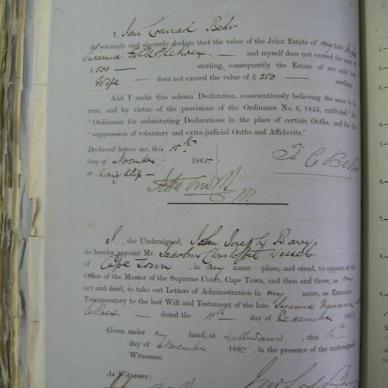 I, Jan Coenrad Behr
do solemnly and sincerely declare that the value of the Joint Estate of my late
Susanna and myself does not exceed the sum of
£ 500 — sterling, consequently the Estate of my said late
Wife — does not exceed the value of £ 250 — sterling.
And I make this solemn Declaration, conscientiously believing the same to be
true, and by virtue of the provisions of the Ordinance No. 6, 1845, entituled "An
"Ordinance for substituting Declarations in the place of certain Oaths, and for the
"suppression of voluntary and extra-judicial Oaths and Affidavits."
Declared before me, this 15th
day of November 186
at
J C Behr
I, the Undersigned, John Joseph Barry
do hereby appoint Mr. Jacobus Christoffel
of Cape Town, in my name, place, and stead, to appear at the
Office of the Master of the Supreme Court, Cape Town, and then and there, as my
act and deed, to take out Letters of Administration in my name, as Executor
Testamentary to the last Will and Testament of the late Susanna
— dated the 11th day of December 186
Given under my hand, at, this
day of November 186, in the presence of the undersigned
Witnesses.
As Witnesses: